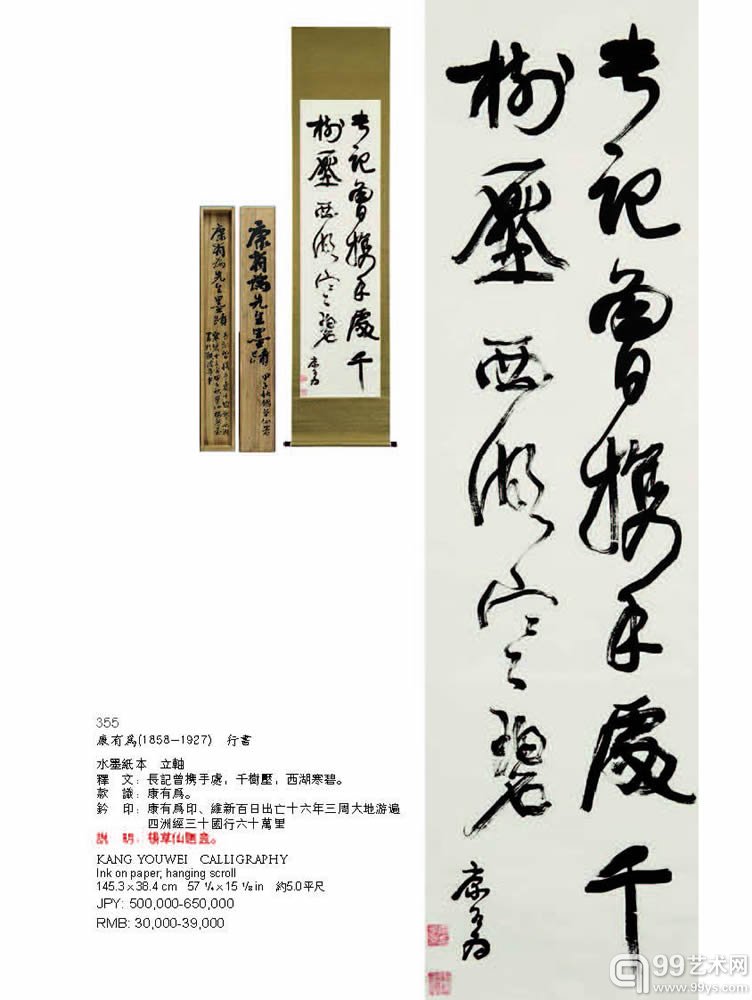 長記曾攜手處千
樹壓西湖寒碧
康有為
康有為先生墨蹟
康有為先生墨蹟
355
康有爲(1858—1927) 行書
水墨紙本 立軸
釋 文：長記曾携手處，千樹壓，西湖寒碧。
款 識：康有爲。
鈐 印：康有爲印、維新百日出亡十六年三周大地游遍
四洲經三十國行六十萬里
説 明：楊草仙題盒。
KANG YOUWEI CALLIGRAPHY
Ink on paper; hanging scroll
145.3×38.4 cm 57 1/4×15 1/8 in 約5.0平尺
JPY: 500,000-650,000
RMB: 30,000-39,000
99艺术网
www.99ys.com